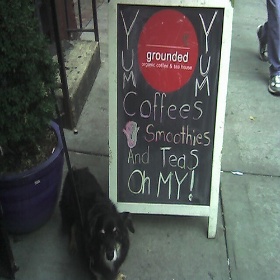 YUM
YUM
grounded
organic coffee & tea house
Coffees
Smoothies
And TeaS
Oh MY!